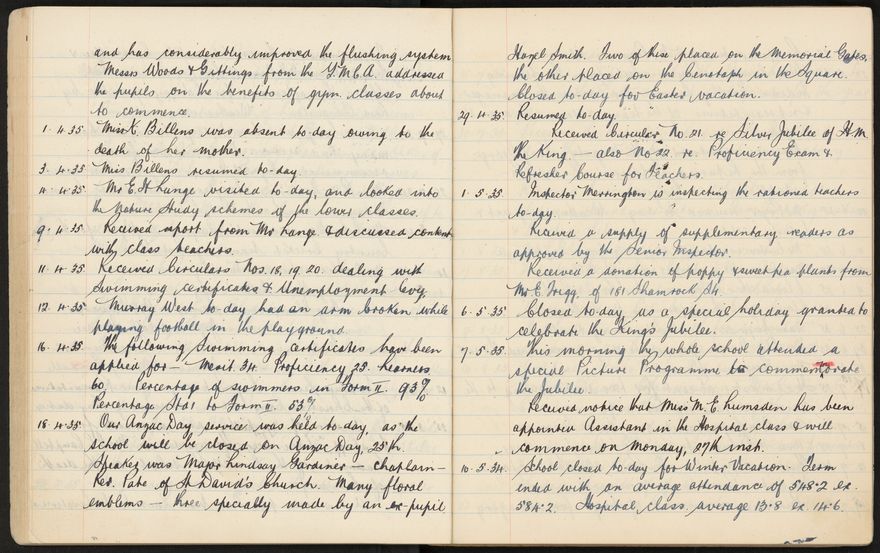 and has considerably improved the flushing system
Messrs Woods & Gittings from the Y.M.C.A. addressed
the pupils on the benefits of gym classes about
to commence.
1. 4. 35 Miss K. Billens was absent to-day owing to the
death of her mother.
3. 4. 35 Miss Billens resumed to-day.
4. 4. 35 Mr E. H. Lange visited to-day, and looked into
the Nature Study schemes of the lower classes.
9. 4. 35 Received report from Mr Lange & discussed content
with class teachers.
11. 4. 35 Received Circulars Nos. 18, 19, 20. dealing with
Swimming certificates & Unemployment Levy.
12. 4. 35 Murray West to-day had an arm broken while
playing football in the playground.
16. 4. 35 The following Swimming certificates have been
applied for — Merit 34 Proficiency 25. Learners
60. Percentage of swimmers in Form II. 93%
Percentage Std 1 to Form II. 53%
18. 4. 35 Our Anzac Day service was held to-day, as the
school will be closed on Anzac Day, 25th.
Speaker was Major Lindsay Gardiner — chaplain —
Rev. Pate of St David's Church. Many floral
emblems — three specially made by an ex-pupil
Hazel Smith. Two of these placed on the Memorial Gates,
the other placed on the Cenotaph in the Square.
Closed to-day for Easter vacation.
29. 4. 35 Resumed to-day.
Received Circular No. 21. re Silver Jubilee of H.M.
the King. — also No 22 re. Proficiency Exam &
Refresher Course for Teachers.
1. 5. 35 Inspector Merrington is inspecting the rationed teachers
to-day.
Received a supply of supplementary readers as
approved by the Senior Inspector.
Received a donation of poppy & sweet pea plants from
Mr E. Trigg. of 181 Shamrock St.
6. 5. 35 Closed to-day as a special holiday granted to
celebrate the King's Jubilee.
7. 5. 35. This morning the whole school attended a
special Picture Programme to commemorate
the Jubilee.
Received notice that Miss M. E. Lumsden has been
appointed Assistant in the Hospital class & will
commence on Monday, 27th inst.
10. 5. 34. School closed to-day for Winter Vacation. Term
ended with an average attendance of 548.2 ex.
584.2. Hospital class average 13.8 ex 14.6.